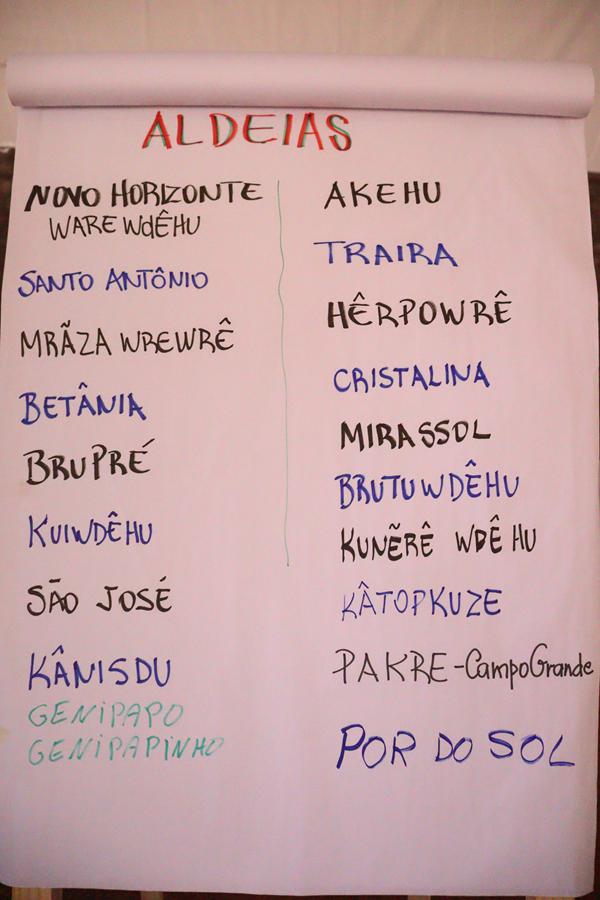 ALDEIAS
NOVO HORIZONTE
WARE WDÊHU
SANTO ANTÔNIO
MRÃZA WREWRÊ
BETÂNIA
BRUPRÉ
KUIWDÊHU
SÃO JOSÉ
KÂNISDU
GENIPAPO
GENIPAPINHO
AKEHU
TRAIRA
HÊRPOWRÊ
CRISTALINA
MIRASSOL
BRUTUWDÊHU
KUNẼRÊ WDÊHU
KÂTOPKUZE
PAKRE-CampoGrande
POR DO SOL